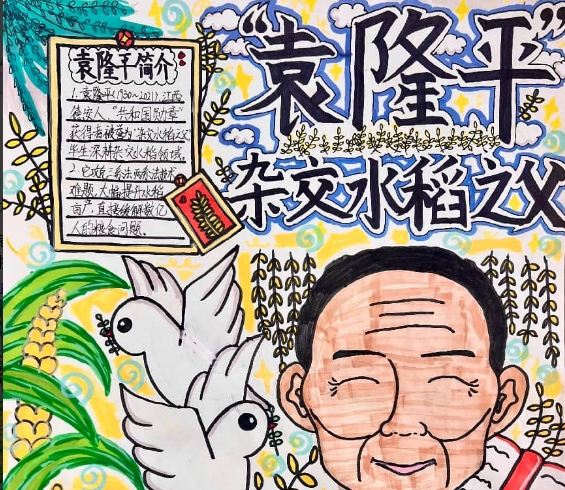 “袁隆平”
杂交水稻之父
袁隆平简介
1.袁隆平(1930~2021),江西
德安人,“共和国勋章”
获得者被誉为“杂交水稻之父”
毕生深耕杂交水稻领域
2.它攻克三系法两系法技术
难题,大幅提升水稻
亩产,直接缓解数亿
人的粮食问题。